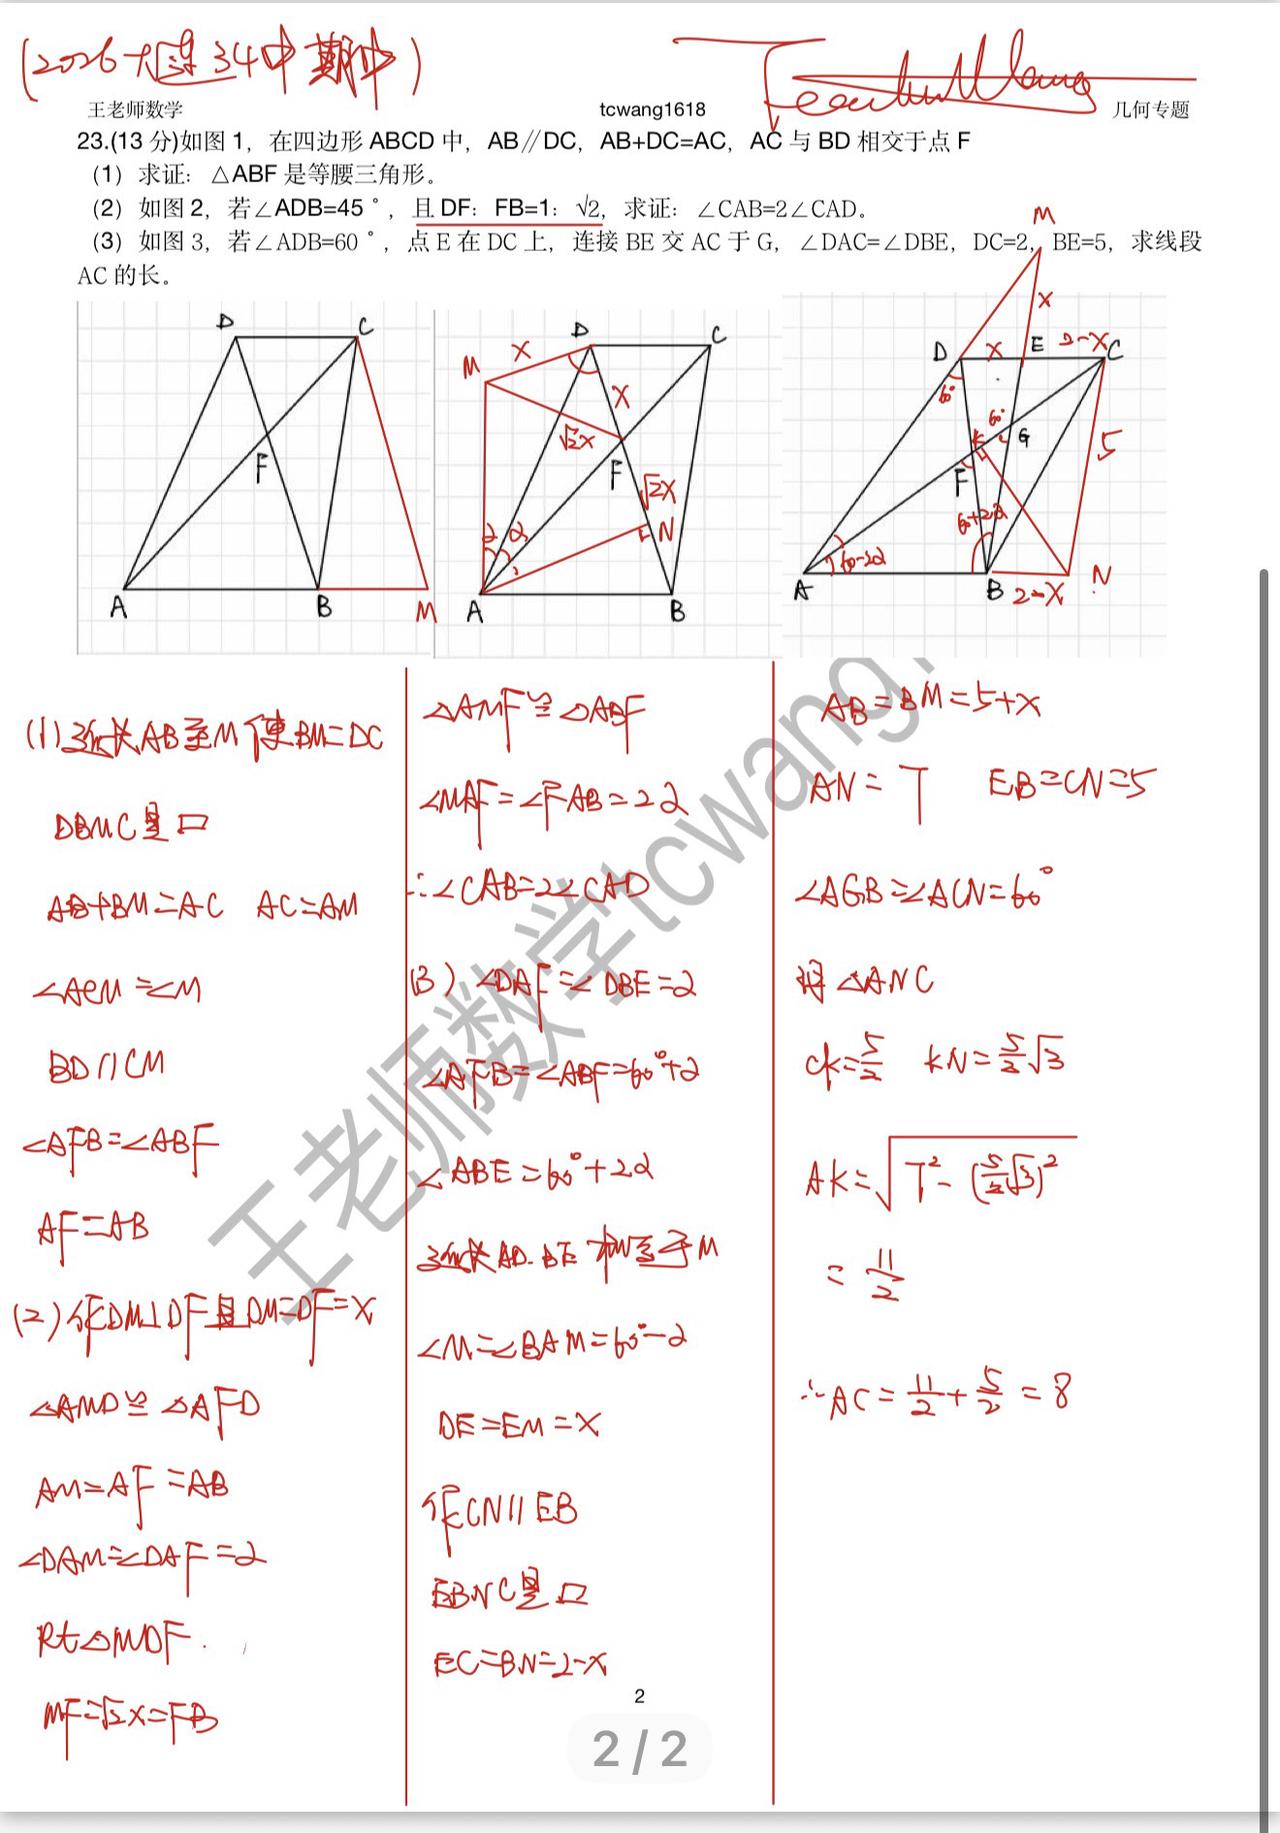 (2026大连34中期中)
Teacher Wang
王老师数学 tcwang1618 几何专题
23.(13 分)如图 1，在四边形 ABCD 中，AB∥DC，AB+DC=AC，AC 与 BD 相交于点 F
（1）求证：△ABF 是等腰三角形。
（2）如图 2，若∠ADB=45°，且 DF：FB=1：√2，求证：∠CAB=2∠CAD。
（3）如图 3，若∠ADB=60°，点 E 在 DC 上，连接 BE 交 AC 于 G，∠DAC=∠DBE，DC=2，BE=5，求线段
AC 的长。
D C F A B M
D C M x x √2x F √2x N α α A B
M x D x E 2-x C 60° 60° K G F 5 60+2α 60-2α A B 2-x N
(1)延长AB至M使BM=DC
DBMC是▱
AB+BM=AC AC=AM
∠ACM=∠M
BD∥CM
∠AFB=∠ABF
AF=AB
(2)作DM⊥DF且DM=DF=x
△AMD≌△AFD
AM=AF=AB
∠DAM=∠DAF=α
Rt△MDF.
MF=√2x=FB
△AMF≌△ABF
∠MAF=∠FAB=2α
∴∠CAB=2∠CAD
(3)∠DAF=∠DBE=α
∠AFB=∠ABF=60°+α
∠ABE=60°+2α
延长AD.BE交于M
∠M=∠BAM=60°-α
DE=EM=x
作CN∥EB
EBNC是▱
EC=BN=2-x
AB=BM=5+x
AN=7 EB=CN=5
∠AGB=∠ACN=60°
△ANC
CK=5/2 KN=5/2√3
AK=√7²-(5/2√3)²
=11/2
∴AC=11/2+5/2=8
王老师数学tcwang
2
2 / 2